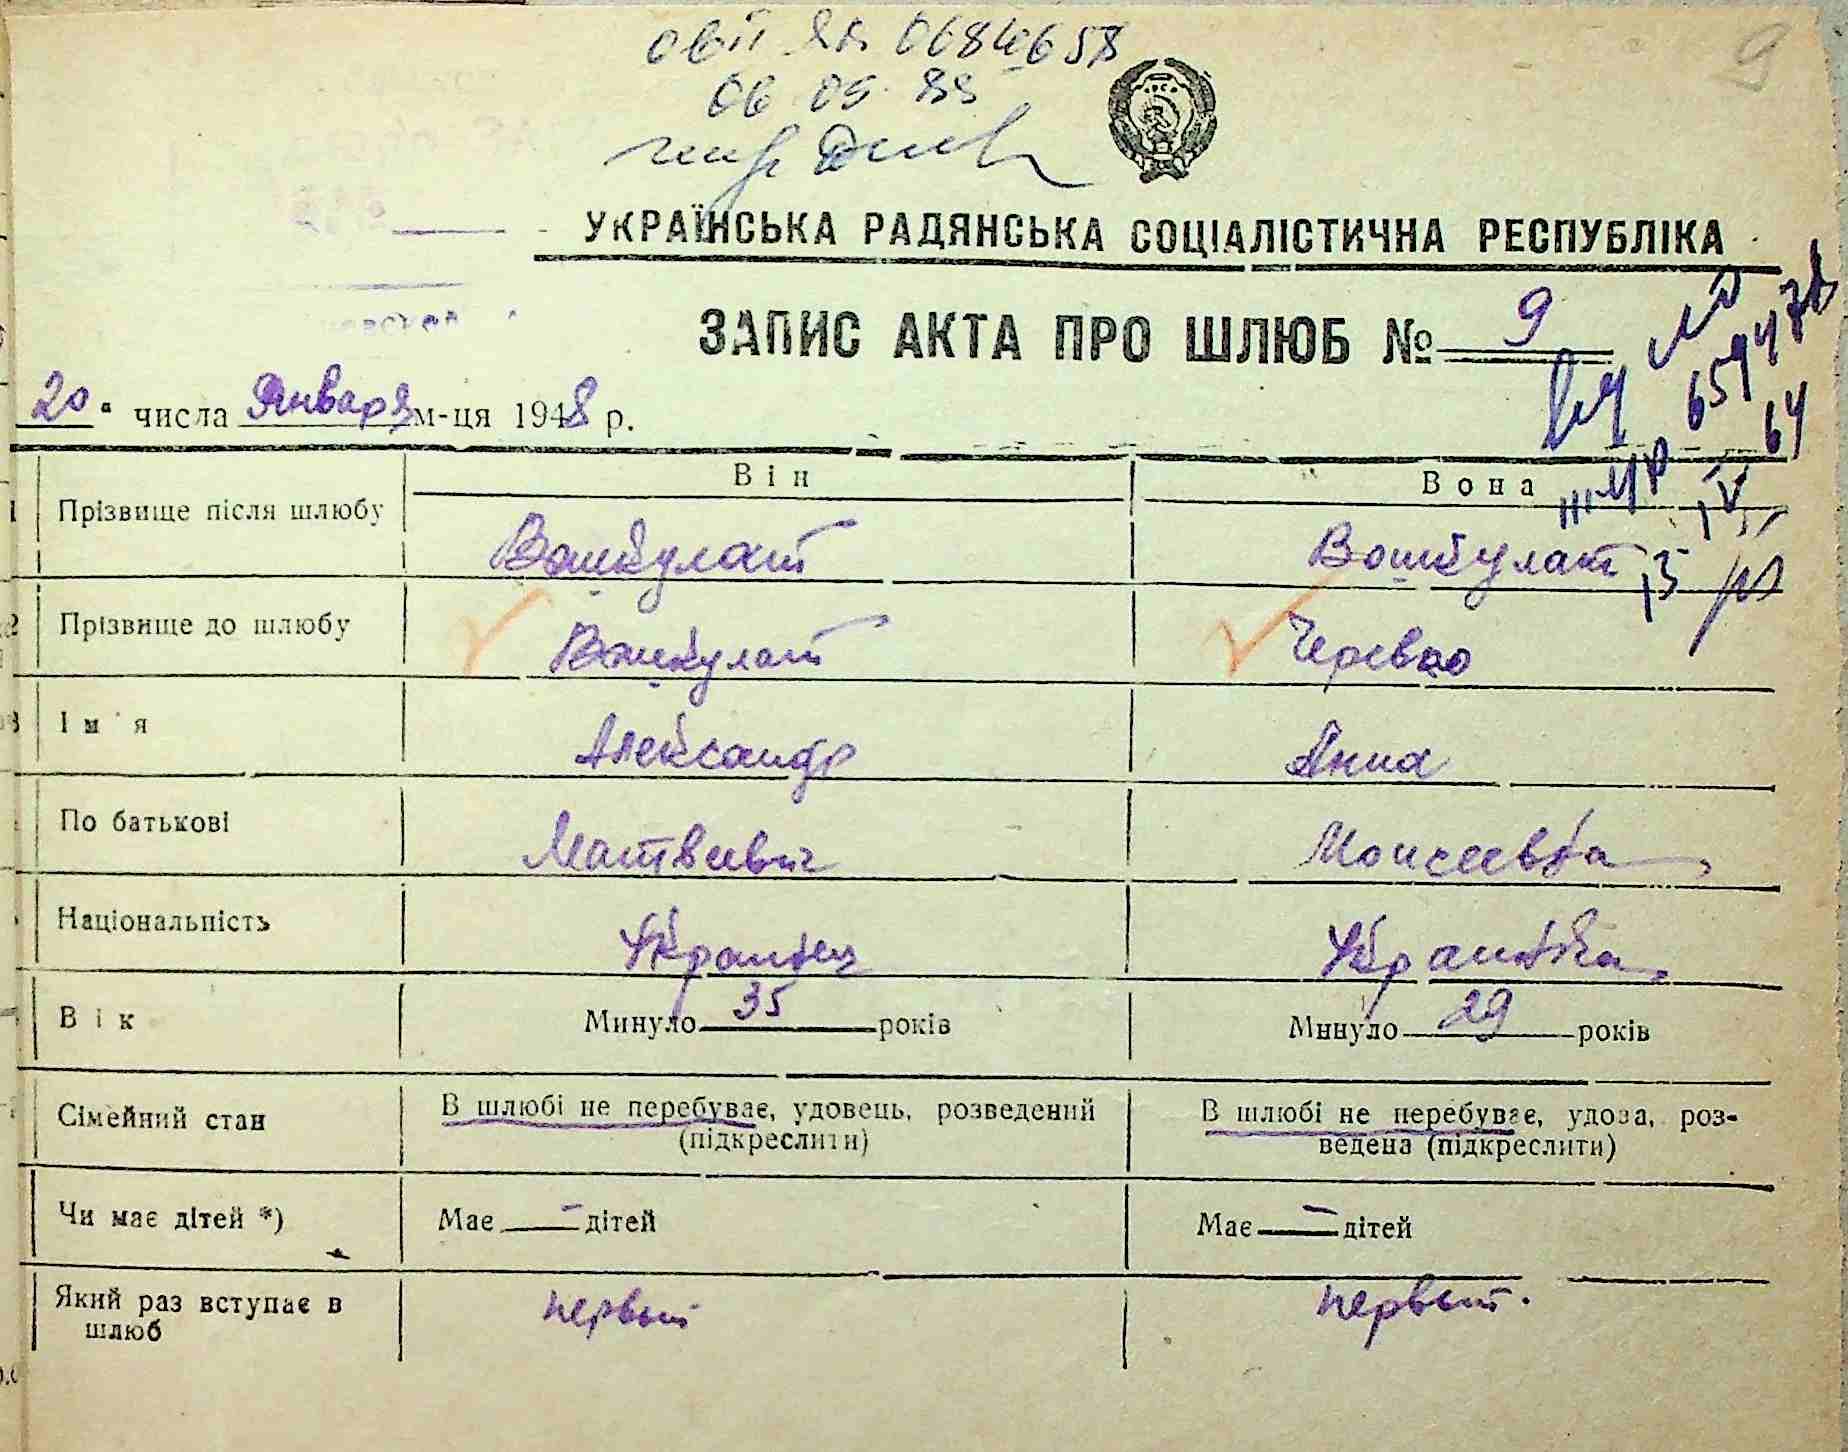 06 05. 88
9
УКРАЇНСЬКА РАДЯНСЬКА СОЦІАЛІСТИЧНА РЕСПУБЛІКА
ЗАПИС АКТА ПРО ШЛЮБ № 9
20 числа Января м-ця 1948 р.
Він Вона
Прізвище після шлюбу Вошкулат Вошкулат
Прізвище до шлюбу Вошкулат Черевко
Ім'я Александр Анна
По батькові Матвеевич Моисеевна
Національність Украинец Украинка
Вік Минуло 35 років Минуло 29 років
Сімейний стан В шлюбі не перебуває, удовець, розведений (підкреслити) В шлюбі не перебуває, удова, роз-
ведена (підкреслити)
Чи має дітей *) Має — дітей Має — дітей
Який раз вступає в шлюб первый первый.